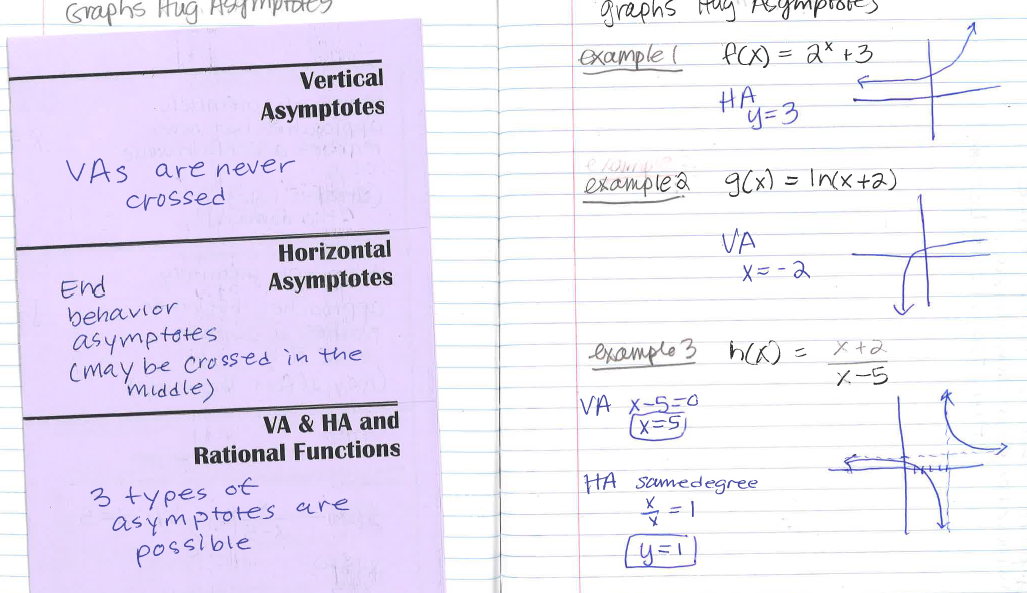 Graphs Hug Asymptotes
Vertical
Asymptotes
VAs are never
crossed
Horizontal
Asymptotes
End
behavior
asymptotes
(may be crossed in the
middle)
VA & HA and
Rational Functions
3 types of
asymptotes are
possible
graphs Hug Asymptotes
example 1 f(x) = 2^x + 3
HA
y = 3
example 2 g(x) = ln(x+2)
VA
x = -2
example 3 h(x) = x+2
x-5
VA x-5=0
x=5
HA same degree
x/x = 1
y=1